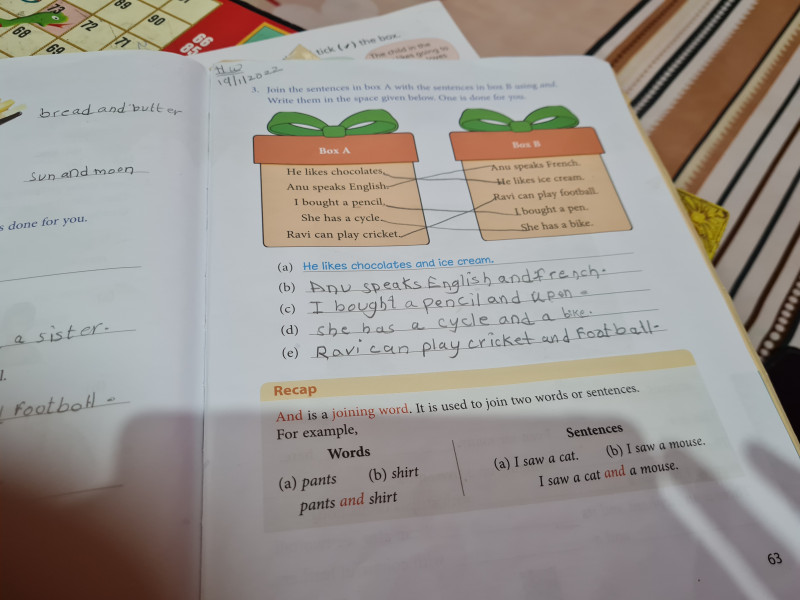 73
89
90
68
69
71
72
tick (✓) the box.
The child in the
bread and butter
sun and moon
s done for you.
a sister.
l.
football
H.W
19/1/2022
3. Join the sentences in box A with the sentences in box B using and.
Write them in the space given below. One is done for you.
Box A
He likes chocolates.
Anu speaks English.
I bought a pencil.
She has a cycle.
Ravi can play cricket.
Box B
Anu speaks French.
He likes ice cream.
Ravi can play football.
I bought a pen.
She has a bike.
(a) He likes chocolates and ice cream.
(b) Anu speaks English and french.
(c) I bought a pencil and upen
(d) she has a cycle and a bike.
(e) Ravi can play cricket and Football-
Recap
And is a joining word. It is used to join two words or sentences.
For example,
Words
(a) pants (b) shirt
pants and shirt
Sentences
(a) I saw a cat. (b) I saw a mouse.
I saw a cat and a mouse.
63